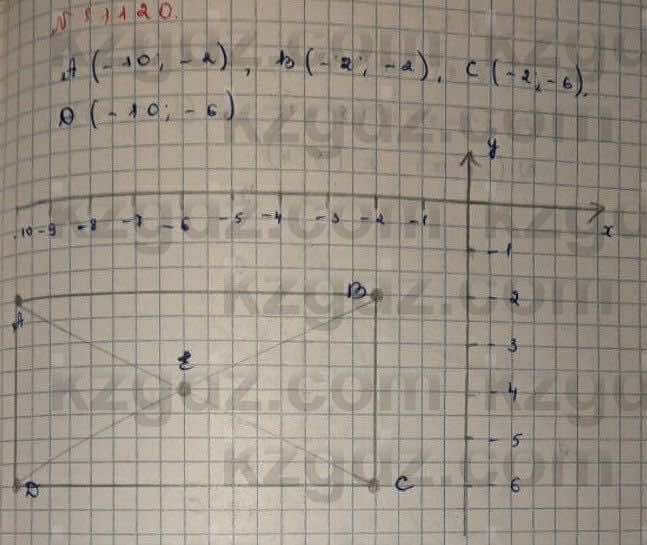 № 1120.
A (-10; -2), B (-2; -2), C (-2; -6),
D (-10; -6)
y
-10 -9 -8 -7 -6 -5 -4 -3 -2 -1
x
-1
A B -2
-3
E -4
-5
D C 6
kzgdz.com